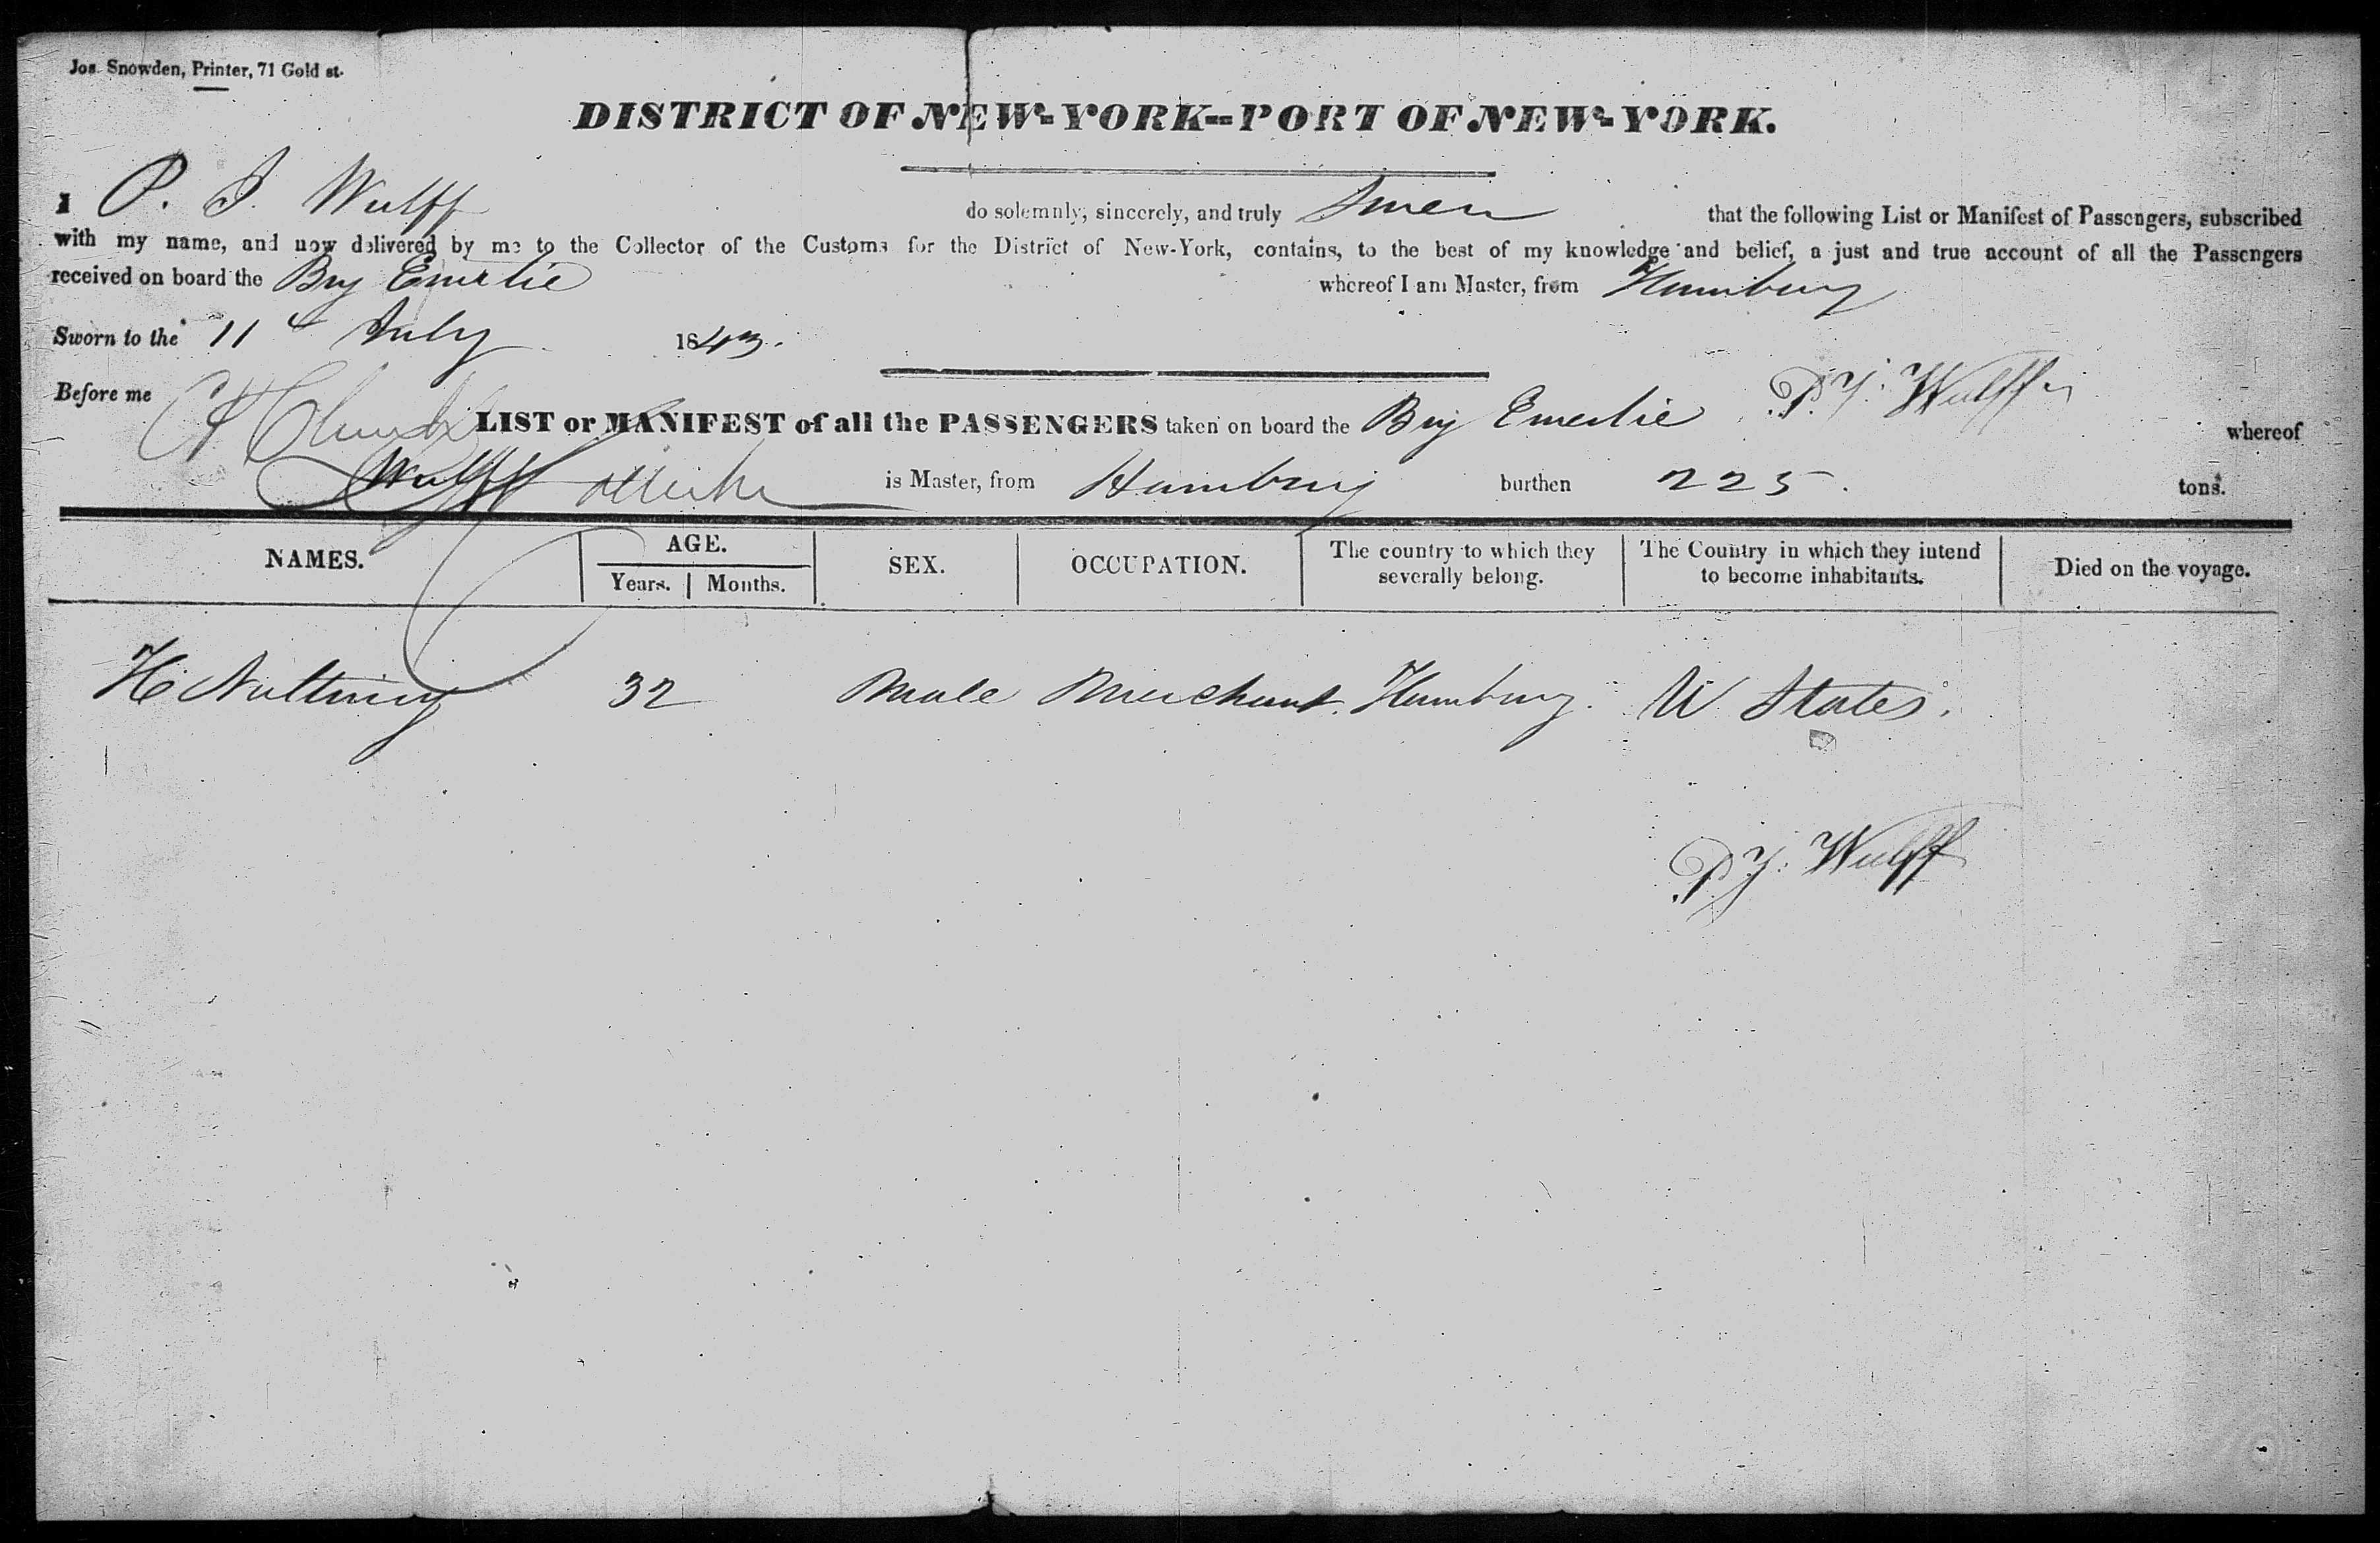 Jos. Snowden, Printer, 71 Gold st.
DISTRICT OF NEW-YORK--PORT OF NEW-YORK.
I P. J. Wulff do solemnly, sincerely, and truly Swear that the following List or Manifest of Passengers, subscribed
with my name, and now delivered by me to the Collector of the Customs for the District of New-York, contains, to the best of my knowledge and belief, a just and true account of all the Passengers
received on board the Brig Emerlie whereof I am Master, from Hamburg
Sworn to the 11 July 1843.
Before me P. J. Wulff
LIST or MANIFEST of all the PASSENGERS taken on board the Brig Emerlie whereof
Wulff is Master, from Hamburg burthen 225. tons.
NAMES. AGE. Years. Months. SEX. OCCUPATION. The country to which they severally belong. The Country in which they intend to become inhabitants. Died on the voyage.
H Nultning 32 Male Merchant. Hamburg. U States.
P J. Wulff